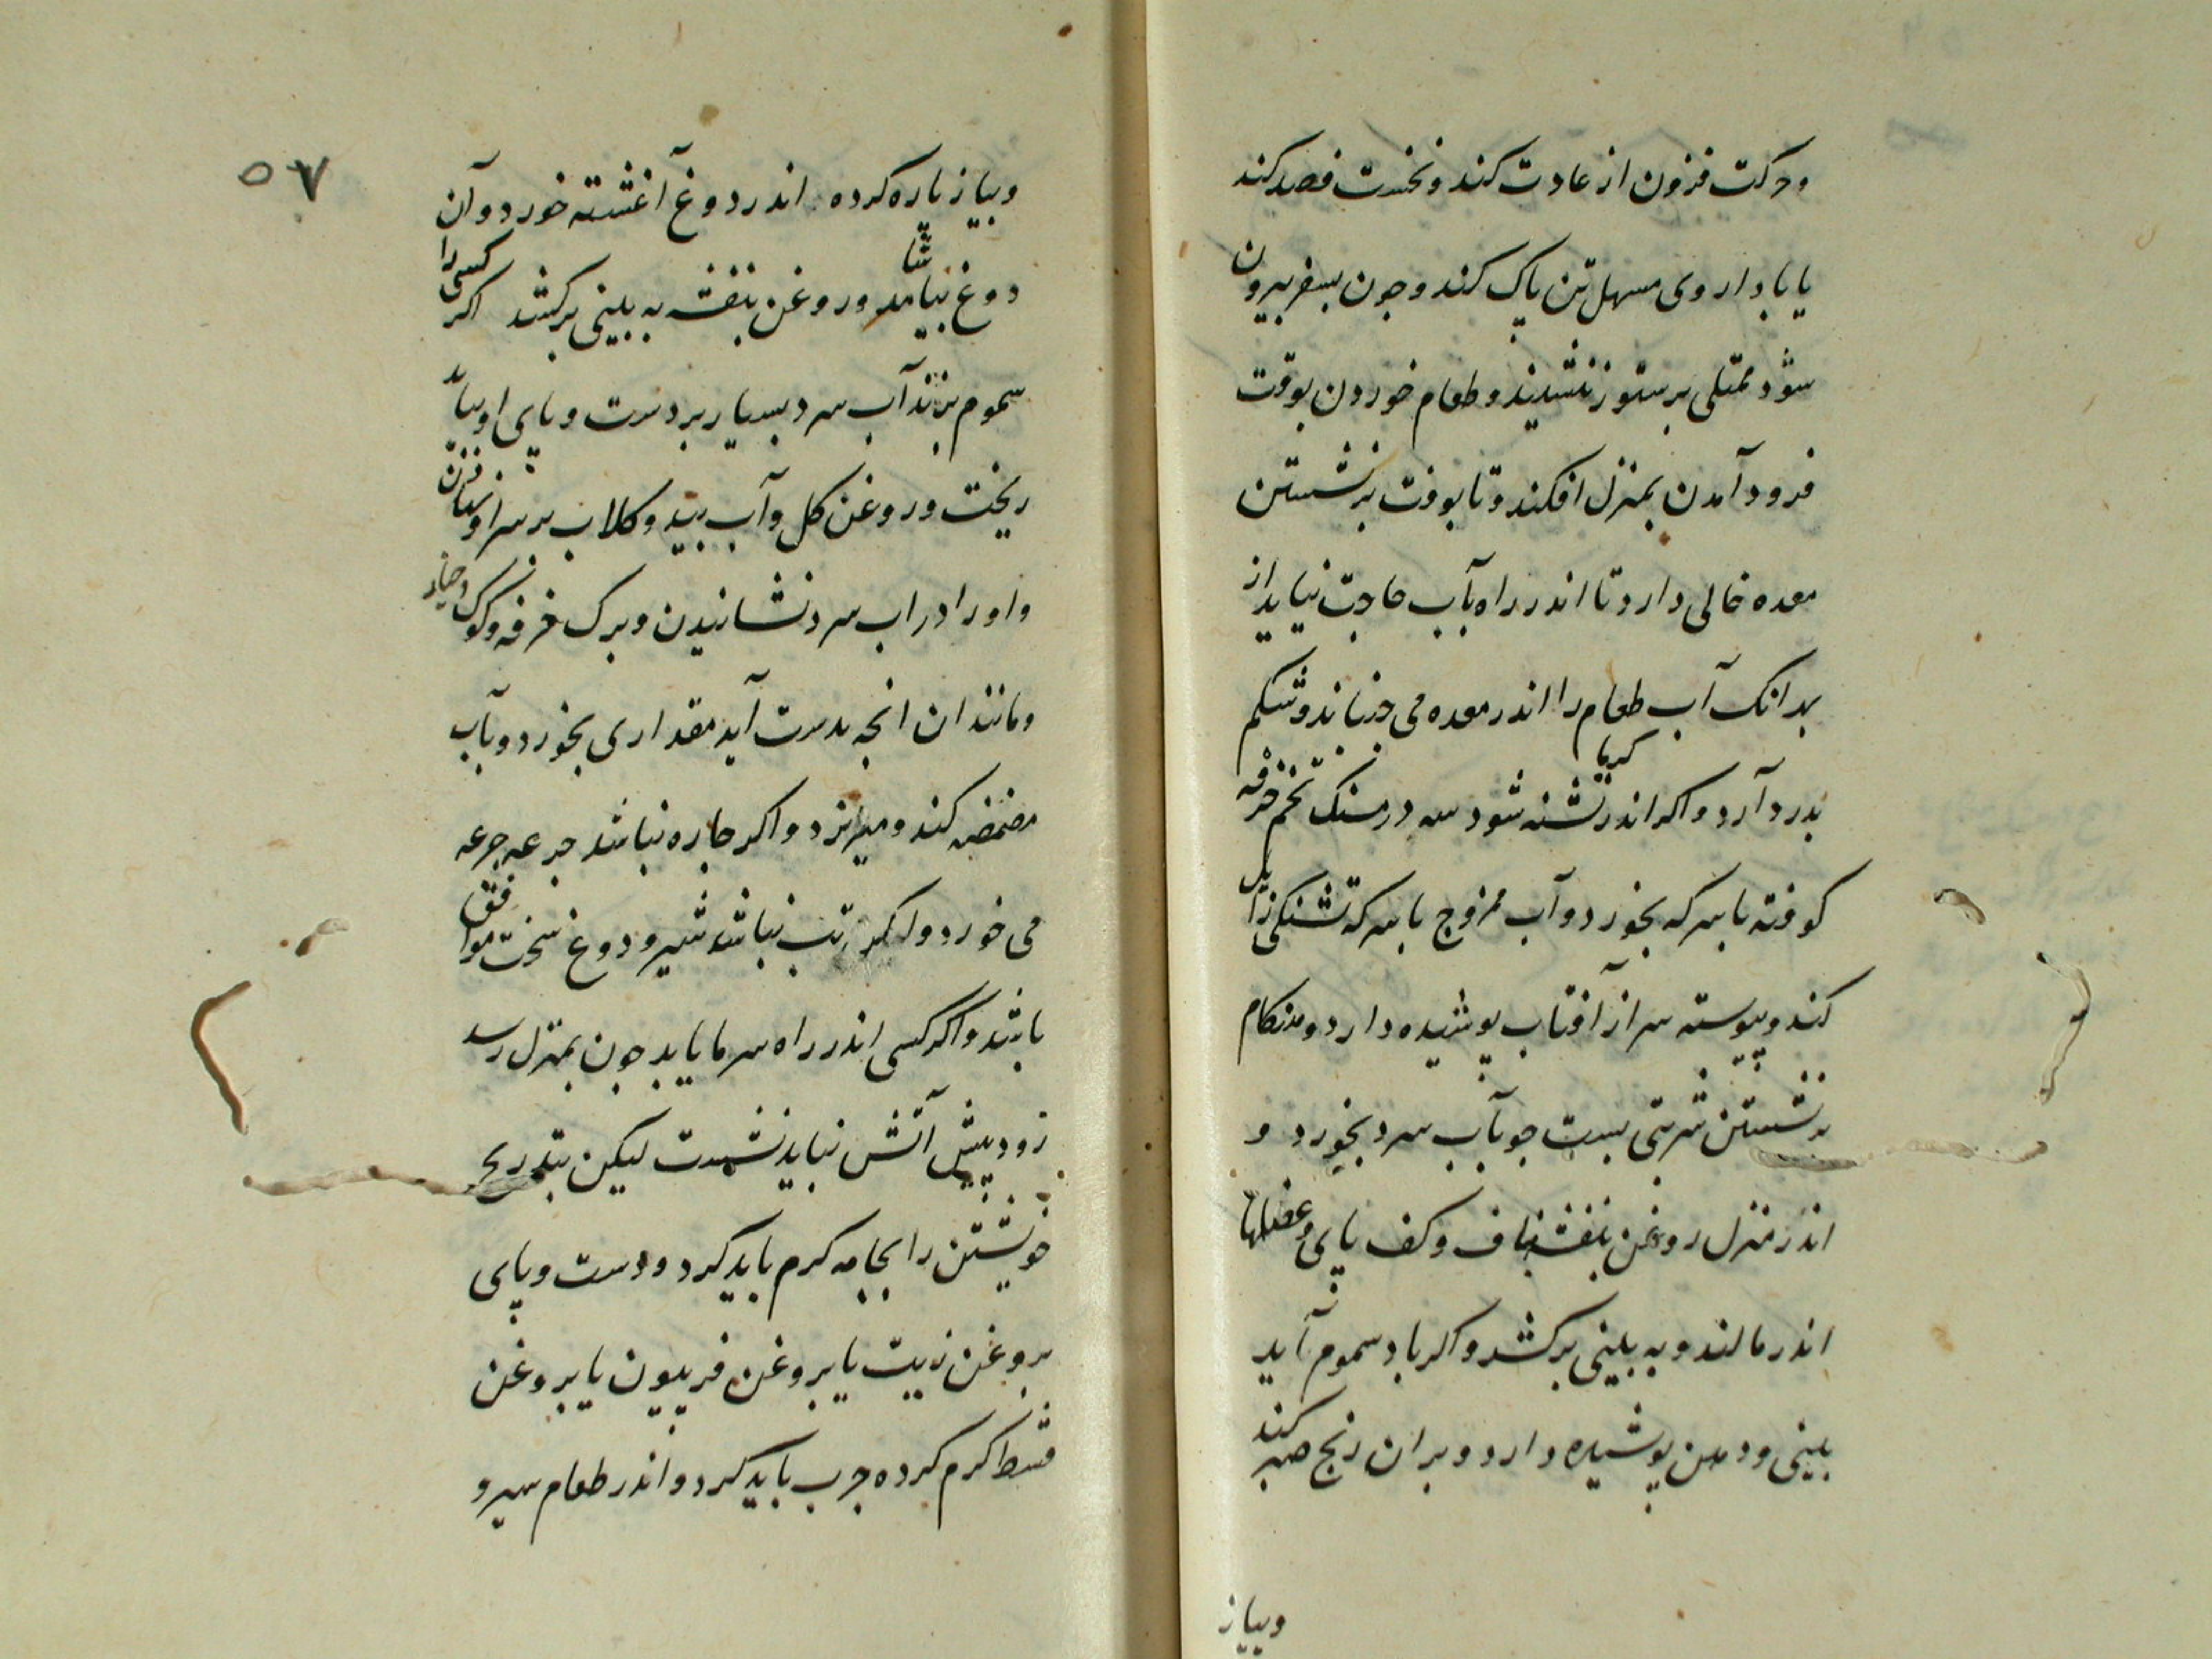 وحرکت فزون از عادت کند و نخست فصد کند
یا با داروی مسهل تن پاک کند و جون بسفر بیرون
شود ممتلی بر ستور ننشیند و طعام خوردن بوقت
فرود آمدن بمنزل افکند و تا بوقت برنشستن
معده خالی دارد تا اندر راه بآب حاجت نیاید از
بهر انک آب طعام را اندر معده می جنباند و شکم
بدرد آرد و اکر اندر کرما تشنه شود سه درمسنک تخم خرفه
کوفته با سرکه بخورد و آب ممزوج با سرکه تشنکی زایل
کند و پیوسته سر از آفتاب پوشیده دارد و هنکام
برنشستن شربتی بست جو بآب سرد بخورد و
اندر منزل روغن بنفشه بناف و کف پای و عضلها
اندر مالند و به بینی برکشد و اکر باد سموم آید
بینی و دهن پوشیده دارد و بران رنج صبر کند
وپیاز
۵۷
وپیاز پاره کرده اندر دوغ آغشته خورد و آن
دوغ بیاشامد و روغن بنفشه به بینی برکشد اکر کسی را
سموم بزند آب سرد بسیار بر دست و پای او بباید
ریخت و روغن کل و آب بید و کلاب بر سر او
واو را در اب سرد نشانیدن و برک خرفه و کوک و خیار
ومانند ان انجه بدست آید مقداری بخورد و بآب
مضمضه کند و میریزد و اکر جاره نباشد جرعه جرعه
می خورد و اکر تب نباشد شیر و دوغ سخت موافق
باشد و اکر کسی اندر راه سرما یابد جون بمنزل رسد
زود پیش آتش نباید نشست لیکن بتدریج
خویشتن را بجامه کرم باید کرد و دست و پای
بروغن زیت یا بروغن فربیون یا بروغن
قسط کرم کرده جرب باید کرد و اندر طعام سیر و